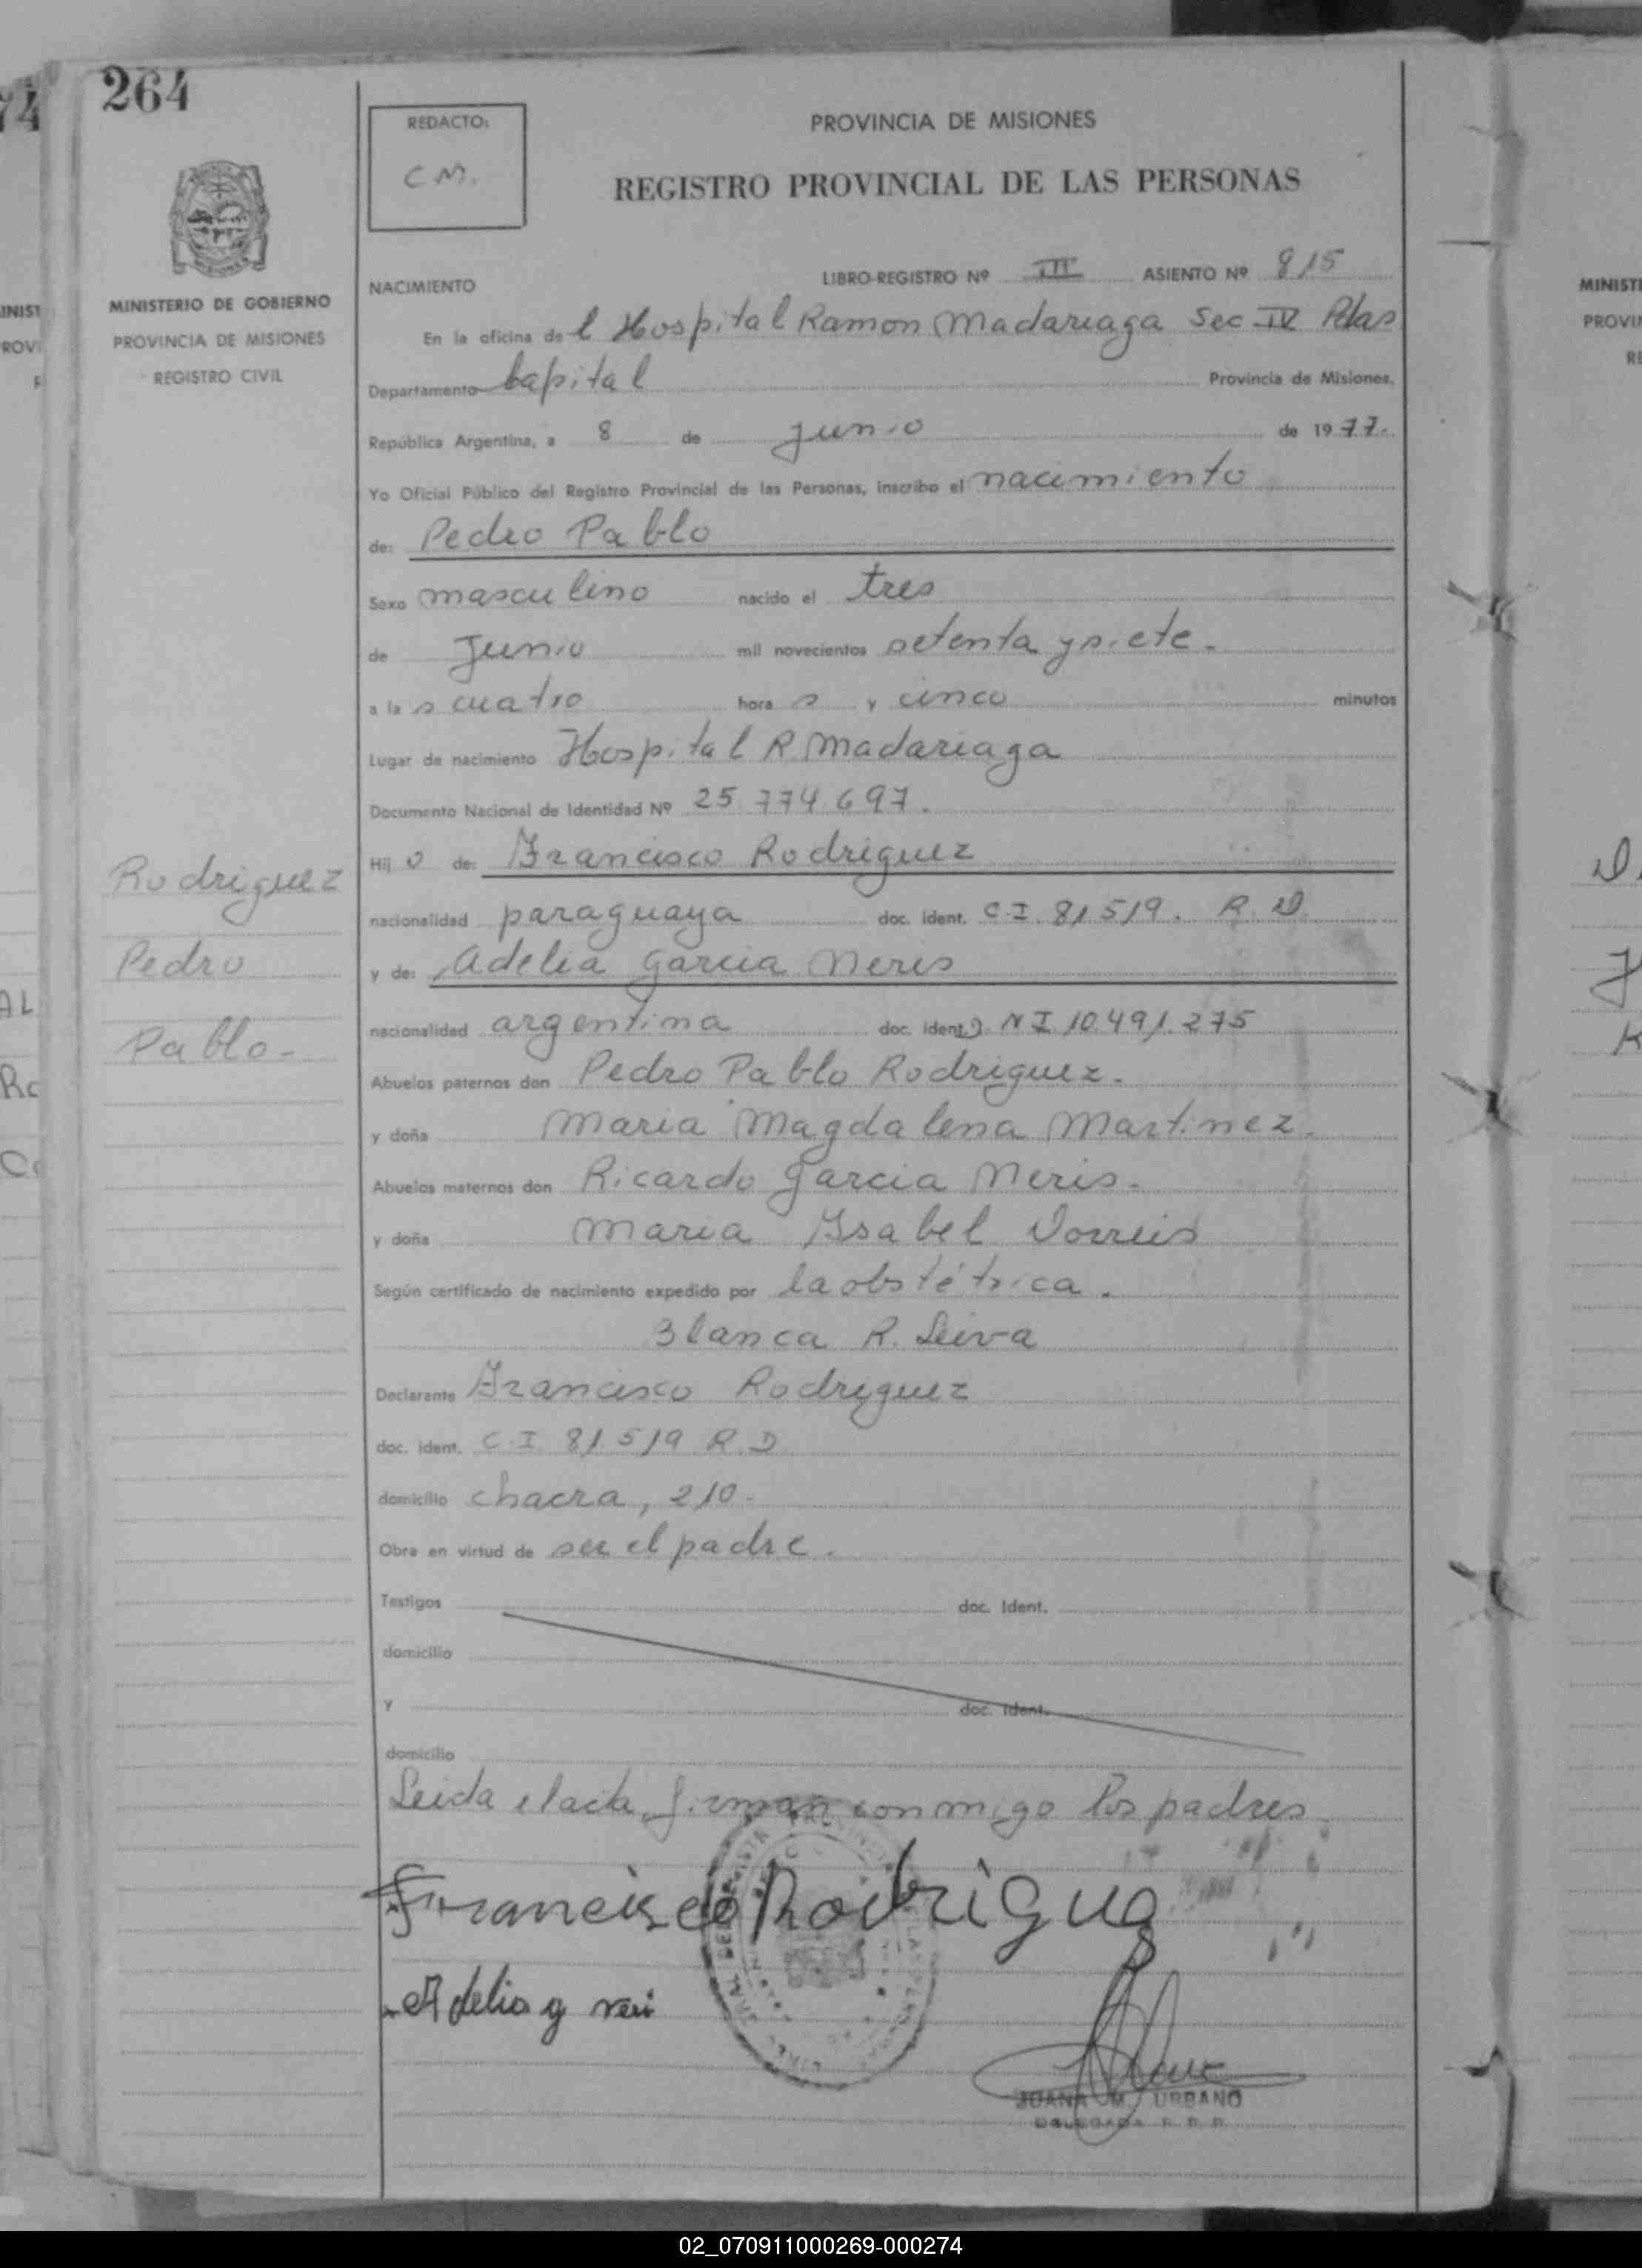 264
REDACTO:
C M.
PROVINCIA DE MISIONES
REGISTRO PROVINCIAL DE LAS PERSONAS
MINISTERIO DE GOBIERNO
PROVINCIA DE MISIONES
REGISTRO CIVIL
NACIMIENTO LIBRO-REGISTRO Nº III ASIENTO Nº 815
En la oficina de l Hospital Ramon Madariaga Sec IV Pdas
Departamento Capital Provincia de Misiones.
República Argentina, a 8 de Junio de 1977.
Yo Oficial Público del Registro Provincial de las Personas, inscribo el nacimiento
de: Pedro Pablo
Sexo masculino nacido el tres
de Junio mil novecientos setenta y siete.
a la s cuatro hora s y cinco minutos
Lugar de nacimiento Hospital R. Madariaga
Documento Nacional de Identidad Nº 25.774.697.
Hij o de: Francisco Rodriguez
nacionalidad paraguaya doc. ident. C.I. 81.519. R. D.
y de: Adelia Garcia Neris
nacionalidad argentina doc. ident. D N I 10.491.275
Abuelos paternos don Pedro Pablo Rodriguez.
y doña Maria Magdalena Martinez.
Abuelos maternos don Ricardo Garcia Neris.
y doña Maria Ysabel
Según certificado de nacimiento expedido por la obstétrica.
Blanca R. Leiva
Declarante Francisco Rodriguez
doc. ident. C.I. 81.519 R.D
domicilio chacra, 210.
Obra en virtud de ser el padre.
Testigos doc. Ident.
domicilio
y doc. Ident.
domicilio
Leida el acta, firman conmigo los padres
Francisco Rodrigue
Adelia g neri
JUANA M. URBANO
DELEGADA R. P. P.
Rodriguez
Pedro
Pablo-
02_070911000269-000274